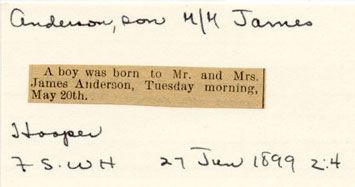 Anderson, son M/M James
A boy was born to Mr. and Mrs.
James Anderson, Tuesday morning,
May 20th.
Hooper
F S. W H 27 Jun 1899 2:4